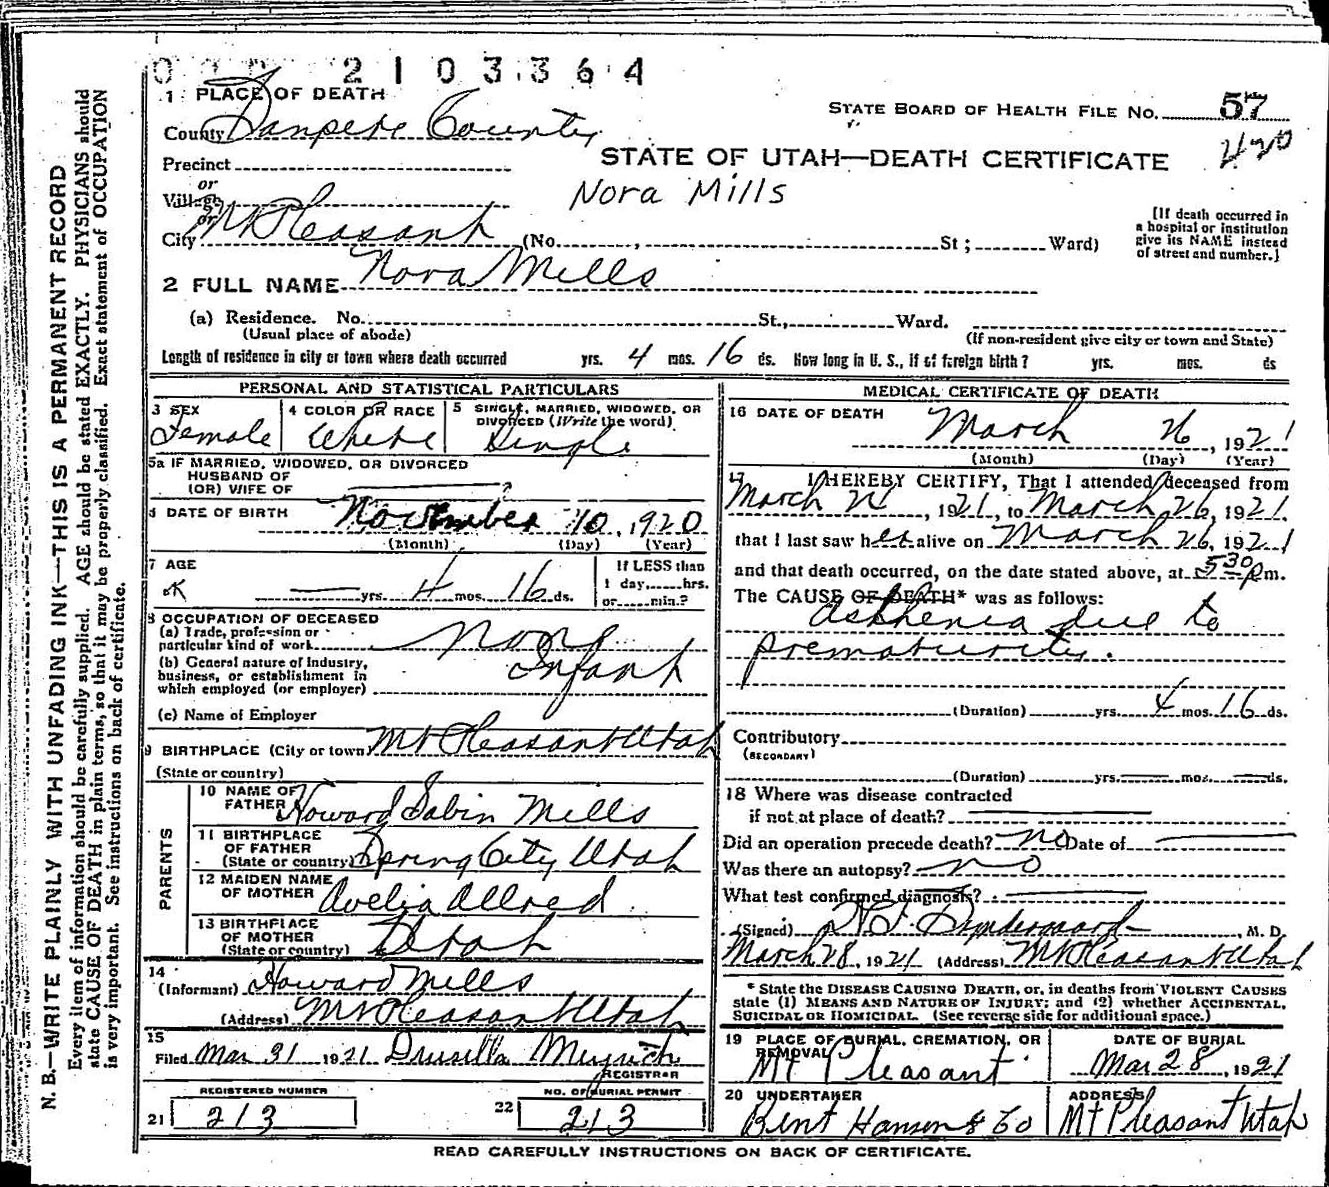 2103364
1 PLACE OF DEATH
STATE BOARD OF HEALTH FILE NO. 57
County Sanpete County
420
Precinct
STATE OF UTAH—DEATH CERTIFICATE
or
Village
Nora Mills
or
City Mt Pleasant (No. , St; Ward)
[If death occurred in
a hospital or institution
give its NAME instead
of street and number.]
2 FULL NAME Nora Mills
(a) Residence. No. St., Ward.
(Usual place of abode) (If non-resident give city or town and State)
Length of residence in city or town where death occurred yrs. 4 mos. 16 ds. How long in U. S., if of foreign birth? yrs. mos. ds
PERSONAL AND STATISTICAL PARTICULARS
3 SEX
Female
4 COLOR OR RACE
White
5 SINGLE, MARRIED, WIDOWED, OR
DIVORCED (Write the word)
Single
5a IF MARRIED, WIDOWED, OR DIVORCED
HUSBAND OF
(OR) WIFE OF
6 DATE OF BIRTH November 10, 1920
(Month) (Day) (Year)
7 AGE
yrs. 4 mos. 16 ds.
If LESS than
1 day, hrs.
or min.?
8 OCCUPATION OF DECEASED
(a) Trade, profession or
particular kind of work None
(b) General nature of Industry,
business, or establishment in
which employed (or employer)
Infant
(c) Name of Employer
9 BIRTHPLACE (City or town) Mt Pleasant Utah
(State or country)
PARENTS
10 NAME OF
FATHER Howard Sabin Mills
11 BIRTHPLACE
OF FATHER
(State or country) Spring City Utah
12 MAIDEN NAME
OF MOTHER Avelia Allred
13 BIRTHPLACE
OF MOTHER
(State or country) Utah
14
(Informant) Howard Mills
(Address) Mt Pleasant Utah
15
Filed Mar 31 1921 Drusilla
REGISTRAR
REGISTERED NUMBER
21 213
NO. OF BURIAL PERMIT
22 213
MEDICAL CERTIFICATE OF DEATH
16 DATE OF DEATH March 26, 1921
(Month) (Day) (Year)
17 I HEREBY CERTIFY, That I attended deceased from
March , 1921, to March 26, 1921
that I last saw her alive on March 26, 1921
and that death occurred, on the date stated above, at 5 30 pm.
The CAUSE OF DEATH* was as follows:
asthenia due to
prematurity.
(Duration) yrs. 4 mos. 16 ds.
Contributory
(SECONDARY)
(Duration) yrs. mos. ds.
18 Where was disease contracted
if not at place of death?
Did an operation precede death? no Date of
Was there an autopsy? no
What test confirmed diagnosis?
(Signed) , M. D.
March 28, 1921 (Address) Mt Pleasant Utah
* State the DISEASE CAUSING DEATH, or, in deaths from VIOLENT CAUSES
state (1) MEANS AND NATURE OF INJURY; and (2) whether ACCIDENTAL,
SUICIDAL OR HOMICIDAL. (See reverse side for additional space.)
19 PLACE OF BURIAL, CREMATION, OR
REMOVAL
Mt Pleasant
DATE OF BURIAL
Mar 28, 1921
20 UNDERTAKER
Bent Hansen & Co
ADDRESS
Mt Pleasant Utah
READ CAREFULLY INSTRUCTIONS ON BACK OF CERTIFICATE.
N. B.—WRITE PLAINLY WITH UNFADING INK—THIS IS A PERMANENT RECORD
Every item of information should be carefully supplied. AGE should be stated EXACTLY. PHYSICIANS should
state CAUSE OF DEATH in plain terms, so that it may be properly classified. Exact statement of OCCUPATION
is very important. See instructions on back of certificate.